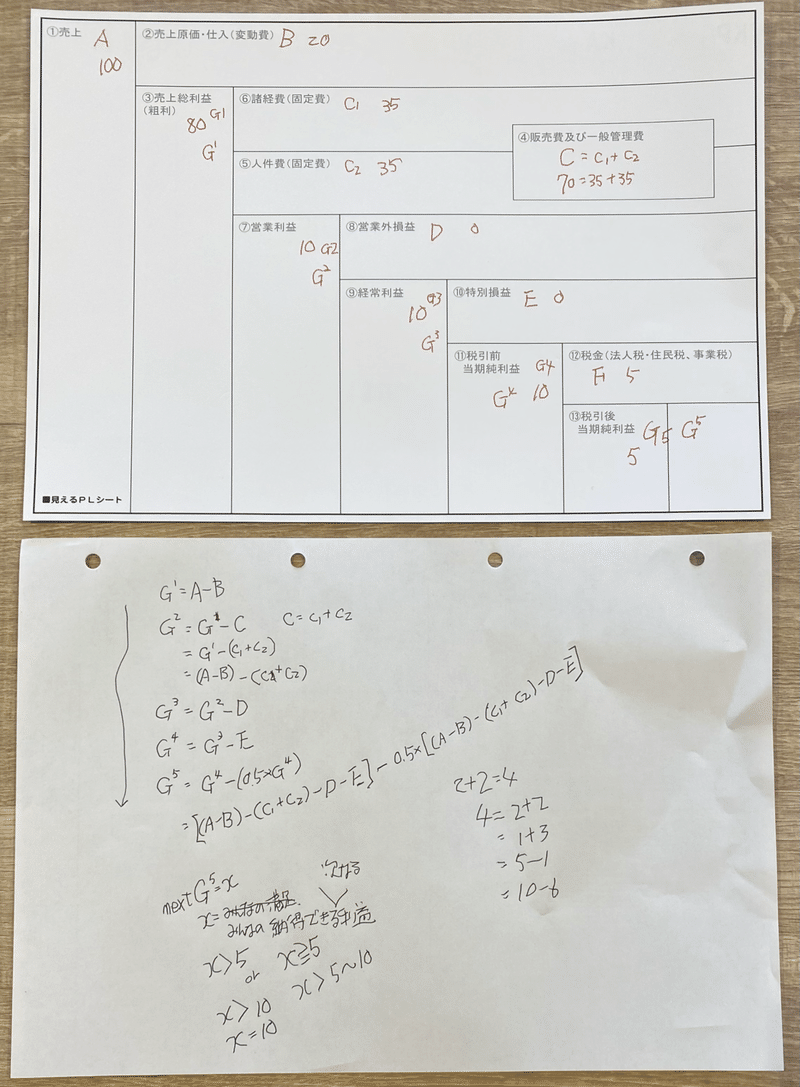 ①売上 A
100
②売上原価・仕入(変動費) B 20
③売上総利益
(粗利)
80 G1
G¹
⑥諸経費(固定費) C₁ 35
④販売費及び一般管理費
C = C₁ + C₂
70 = 35 + 35
⑤人件費(固定費) C₂ 35
⑦営業利益
10 G2
G²
⑧営業外損益 D 0
⑨経常利益
10 G3
G³
⑩特別損益 E 0
⑪税引前
当期純利益 G4
G⁴ 10
⑫税金(法人税・住民税、事業税)
F 5
⑬税引後
当期純利益 G5 G⁵
5
■見えるPLシート
G¹ = A-B
G² = G¹ - C C = C₁ + C₂
= G¹ - (C₁ + C₂)
= (A-B) - (C₁ + C₂)
G³ = G² - D
G⁴ = G³ - E
G⁵ = G⁴ - (0.5×G⁴)
= [(A-B) - (C₁ + C₂) - D - E] - 0.5×[(A-B) - (C₁ + C₂) - D - E]
2+2=4
4=2+2
=1+3
=5-1
=10-6
next G⁵ = x
次なる
x = みんなの
みんなの 納得できる利益
x > 5 or x ≧ 5
x > 10 x > 5~10
x = 10